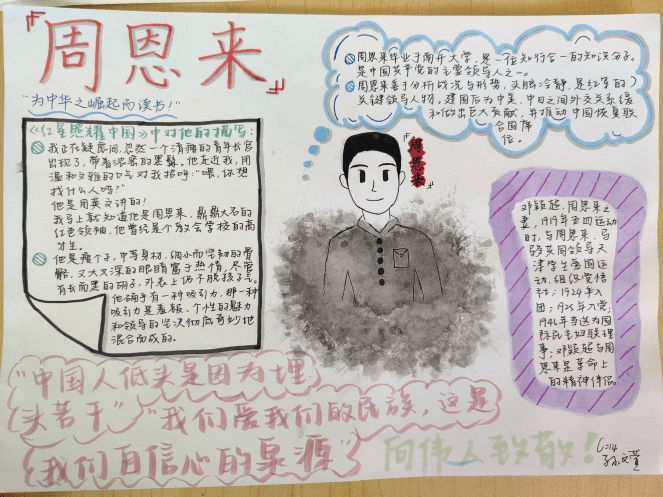 『周恩来』
“为中华之崛起而读书！”
《红星照耀中国》中对他的描写：
我正在疑虑间，忽然一个清瘦的青年长官
出现了，带着浓密的黑髯，他走近我，用
温和文雅的口气对我招呼：“喂，你想
找什么人吗？”
他是用英文讲的！
我马上就知道他是周恩来，鼎鼎大名的
红色领袖，他曾经是个教会学校的高
才生。
他是瘦个子，中等身材，细小而坚韧的骨
骼，又大又深的眼睛富于热情，尽管
有长而黑的胡子，外表上仍不脱孩子气。
他确乎有一种吸引力，那一种
吸引力是羞赧、个性的魅力
和领导的坚决彻底奇妙地
混合而成的。
周恩来毕业于南开大学，是一位知行合一的知识分子。
是中国共产党的主要领导人之一。
周恩来善于分析战况与形势，头脑冷静，是红军的
关键领导人物，建国后为中美、中日之间外交关系缓
和做出巨大贡献，并推动中国恢复联
合国席
位。
周恩来
邓颖超，周恩来之
妻，1919年五四运动
时，与周恩来、马
骏共同领导天
津学生爱国运
动，组织觉悟
社；1924年入
团；1925年入党；
1946年当选为国
际民主妇联理
事；邓颖超与周
恩来是革命上
的精神伴侣。
“中国人低头是因为埋
头苦干”“我们爱我们的民族，这是
我们自信心的泉源”
向伟人致敬！
孙文萱